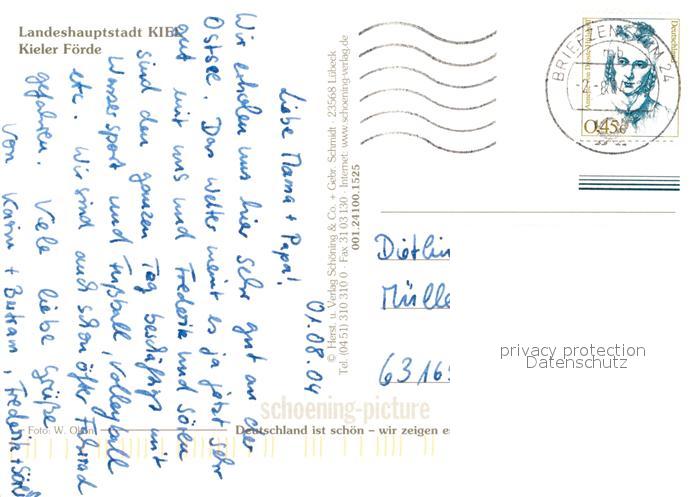 Landeshauptstadt KIEL
Kieler Förde
01.08.04
Liebe Mama + Papa!
Wir erholen uns hier sehr gut an der
Ostsee. Das Wetter meint es ja jetzt sehr
gut mit uns und Frederik und Sören
sind den ganzen Tag beschäftigt mit
Wassersport und Fußball, Volleyball
etc. Wir sind auch schon öfter Fahrrad
gefahren. Viele liebe Grüße
von Karin + Bertram, Frederik + Sören
Foto: W. Olsen
© Herst. u. Verlag Schöning & Co. + Gebr. Schmidt · 23568 Lübeck
Tel. (04 51) 310 310 0 · Fax 31 03 130 · Internet: www.schoening-verlag.de
001.24100.1525
schoening-picture
Deutschland ist schön – wir zeigen es
BRIEFZENTRUM 24
Deutschland
0,45€
Dietlin
Mülle
6316
privacy protection
Datenschutz